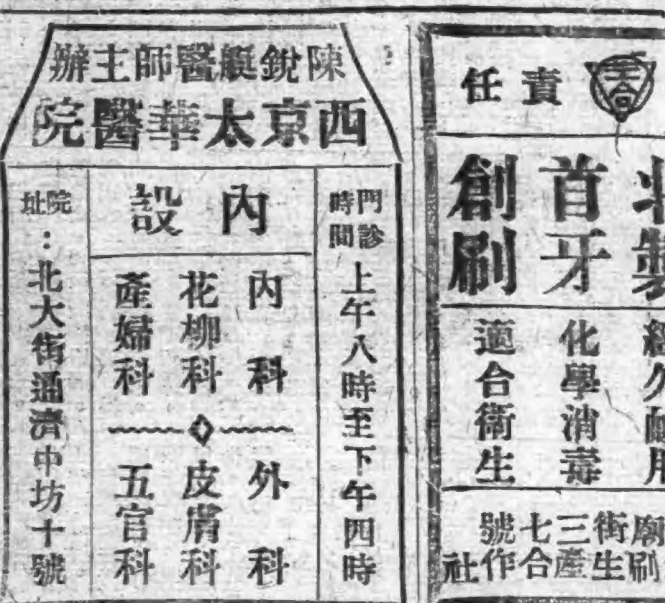 陳銳艇醫師主辦
西京太華醫院
門診時間
上午八時至下午四時
內設
內科
花柳科
產婦科
外科
皮膚科
五官科
院址：北大街通濟中坊十號
責任
首牙
創刷
化學消毒
適合衛生
廟街三七號
刷生產合作社